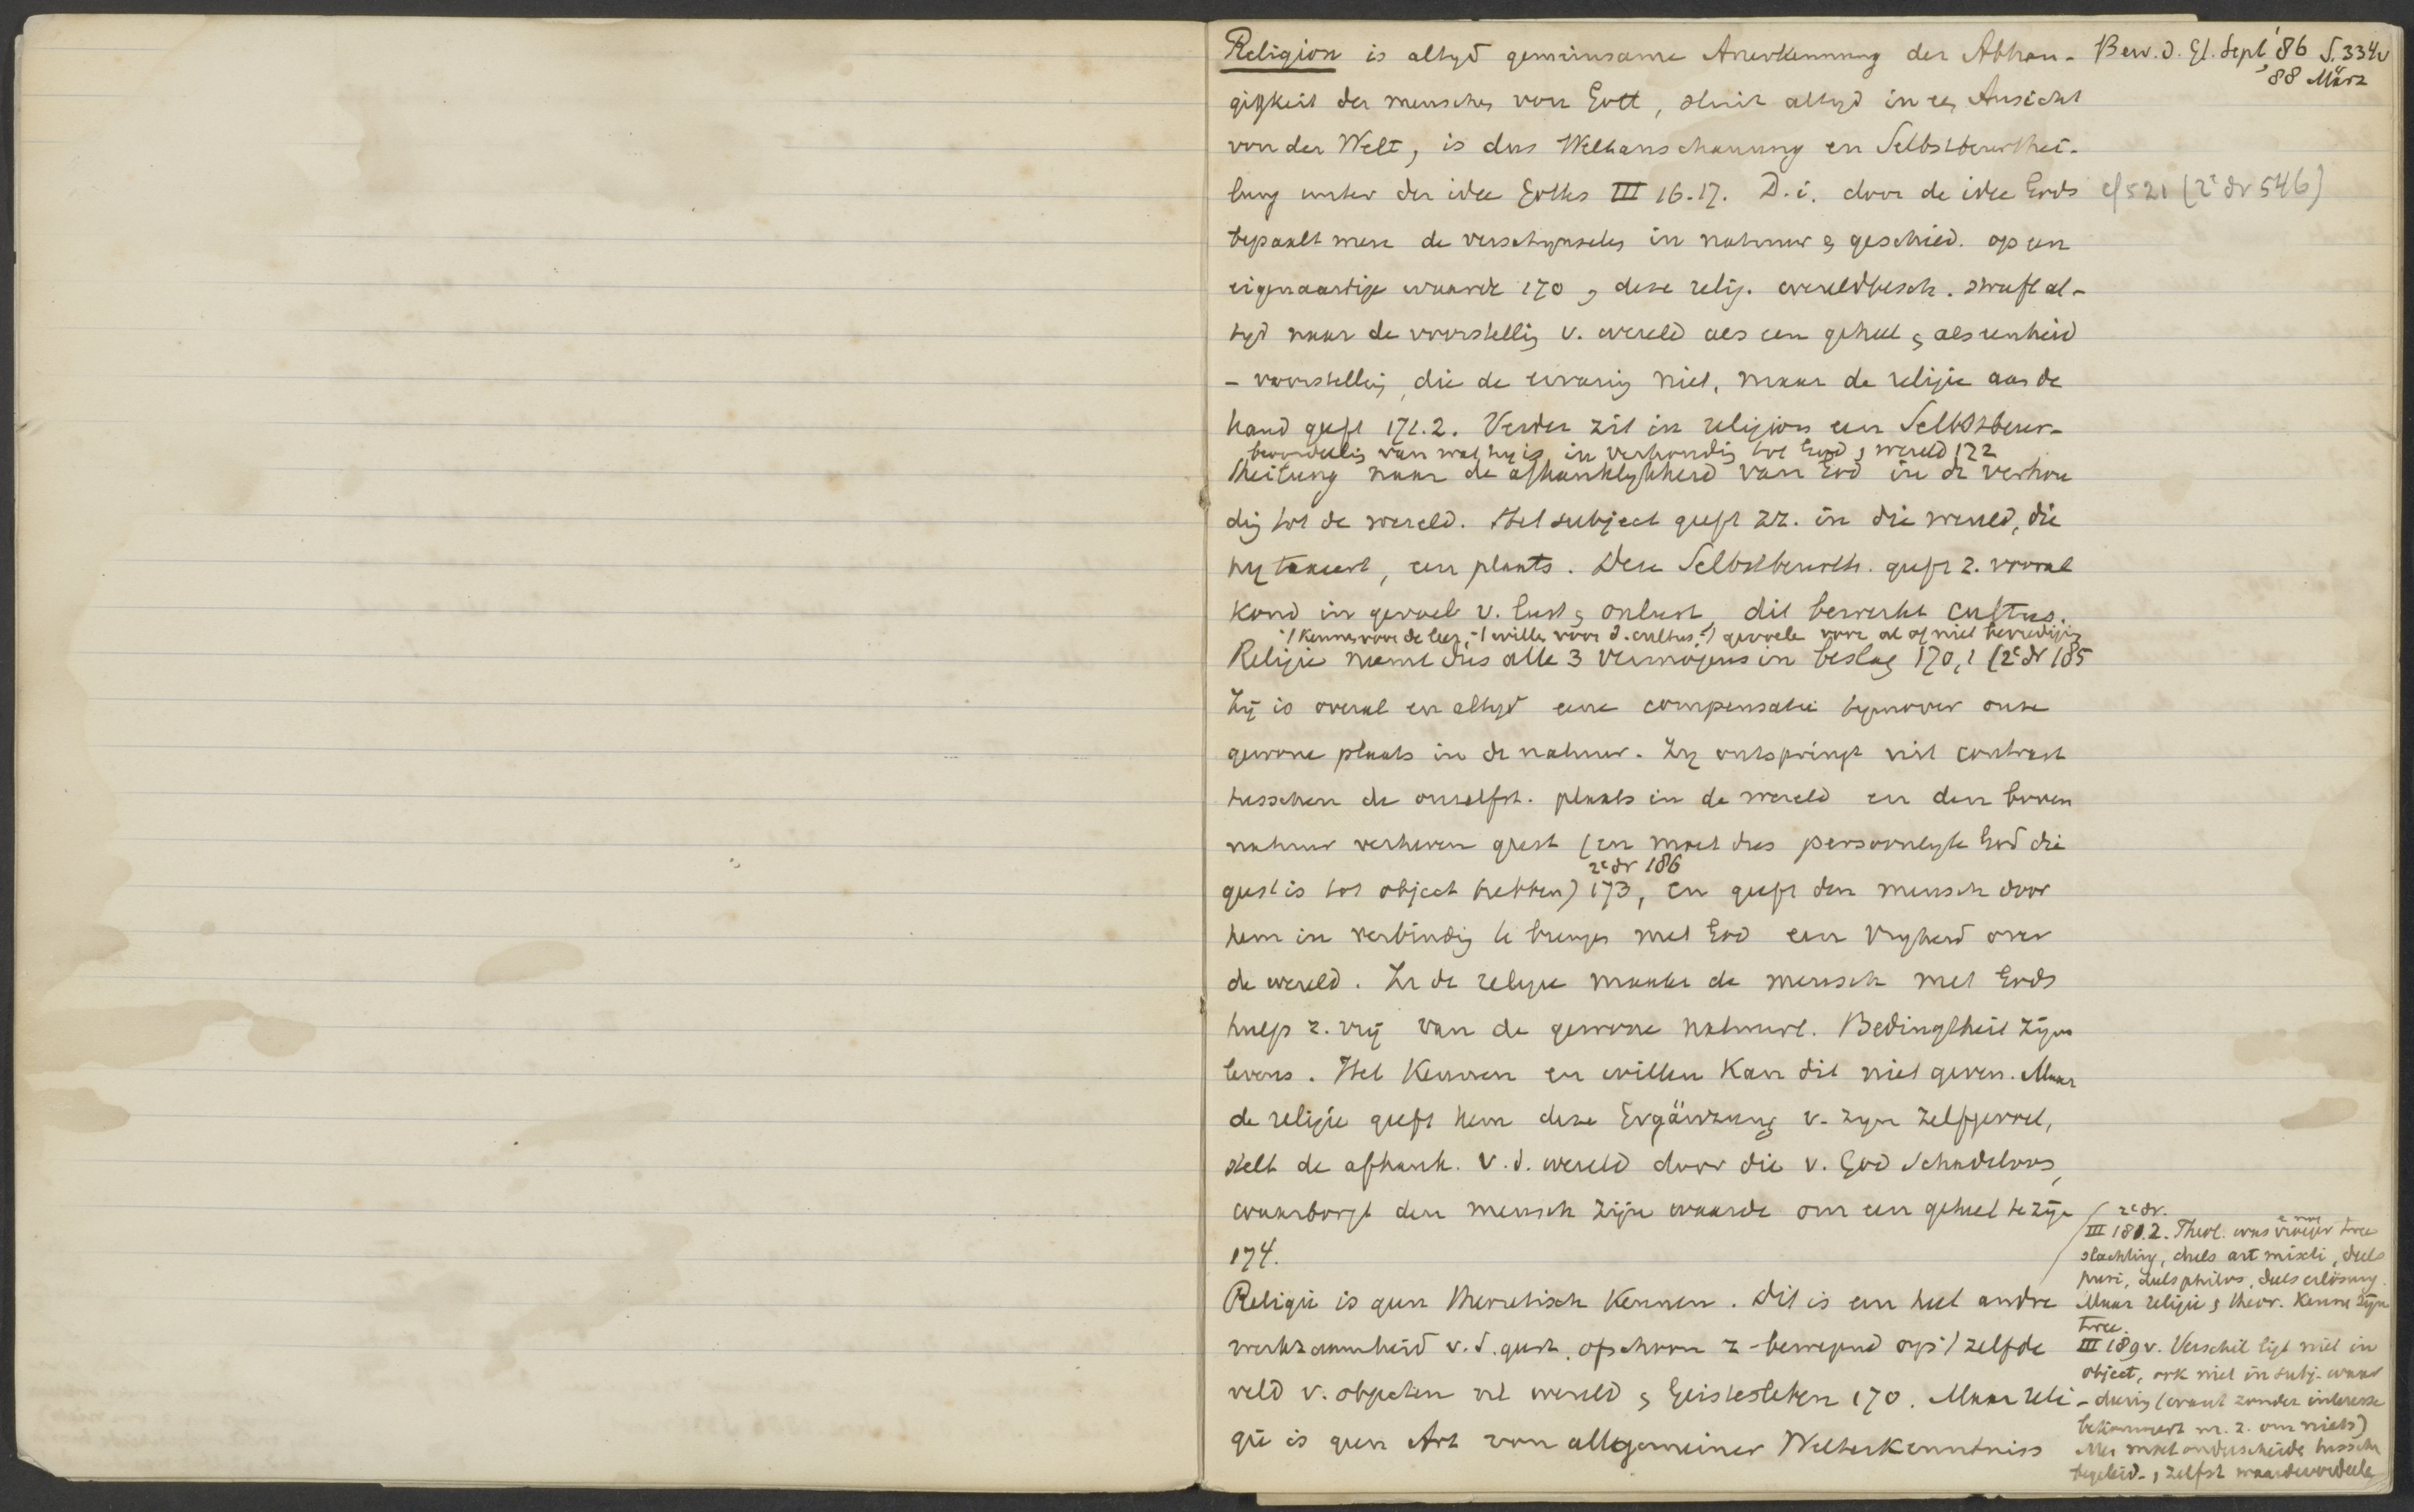 Religion is altyd gemeinsame Anerkennung der Abhän-
gigkeit der menschen von Gott, sluit altyd in een Ansicht
von der Welt, is dus Weltanschauung en Selbstbeurthei-
lung unter der idee Gottes III 16.17. D.i. door de idee Gods
bepaalt men de verschynselen in natuur & geschied. op een
eigenaardige waarde 170 & deze relig. wereldbesch. streeft al-
tyd naar de voorstelling v. wereld als een geheel & als eenheid
- voorstelling, die de ervaring niet, maar de religie aan de
hand geeft 171.2. Verder zit in religion een Selbstbeur-
beoordeeling van wat hy is, in verhouding tot God & wereld 172
theilung naar de afhanklykheid van God in de verhou
ding tot de wereld. Het subject geeft zz. in die wereld, die
hy taxeert, een plaats. Deze Selbstbeurth. geeft z. vooral
kond in gevoel v. lust & onlust, dit bewerkt cultus.
't kennen voor de leer, 't willen voor d. cultus, 't gevoele voor al of niet bevrediging
Religie neemt dus alle 3 vermogens in beslag 170,1 (2e dr 185
Zij is overal en altyd eene compensatie tegenover onze
gewone plaats in de natuur. Zy ontspringt uit contrast
tusschen de onzelfst. plaats in de wereld en den boven
natuur verheven geest (en moet dus persoonlyke God die
2e dr 186
geest is tot object hebben) 173, en geeft den mensch door
hem in verbinding te brengen met God een vryheid over
de wereld. In de religie maakt de mensch met Gods
hulp z. vrij van de gewone natuurl. Bedingtheit zijns
levens. Het Kennen en willen kan dit niet geven. Maar
de religie geeft hem deze Ergänzung v. zyn zelfgevoel,
stelt de afhank. v.d. wereld door die v. God schadeloos,
waarborgt den mensch zijn waarde om een geheel te zijn
174.
Religie is geen theoretisch kennen. Dit is een heel andre
werkzaamheid v.d. geest, ofschoon z. bewegend op 't zelfde
veld v. objecten nl wereld & Geistesleben 170. Maar reli
gie is geen Art von allgemeiner Welterkenntniss
Bew. d. Gl. Sept '86 S. 334v
'88 März
cf 521 (2e dr 546)
2e dr.
III 181.2. Theol. was vroeger twee
slachting, deels art. mixti, deels
puri, deels philos, deels erlösung.
Maar religie & theor. kenne zijn
twee.
III 189v. Verschil ligt niet in
object, ook niet in subj. waar
- deering (want zonder interesse
bekommert m. z. om niets)
Men moet onderscheide tussche
begeleid- & zelfst waardeoordeele